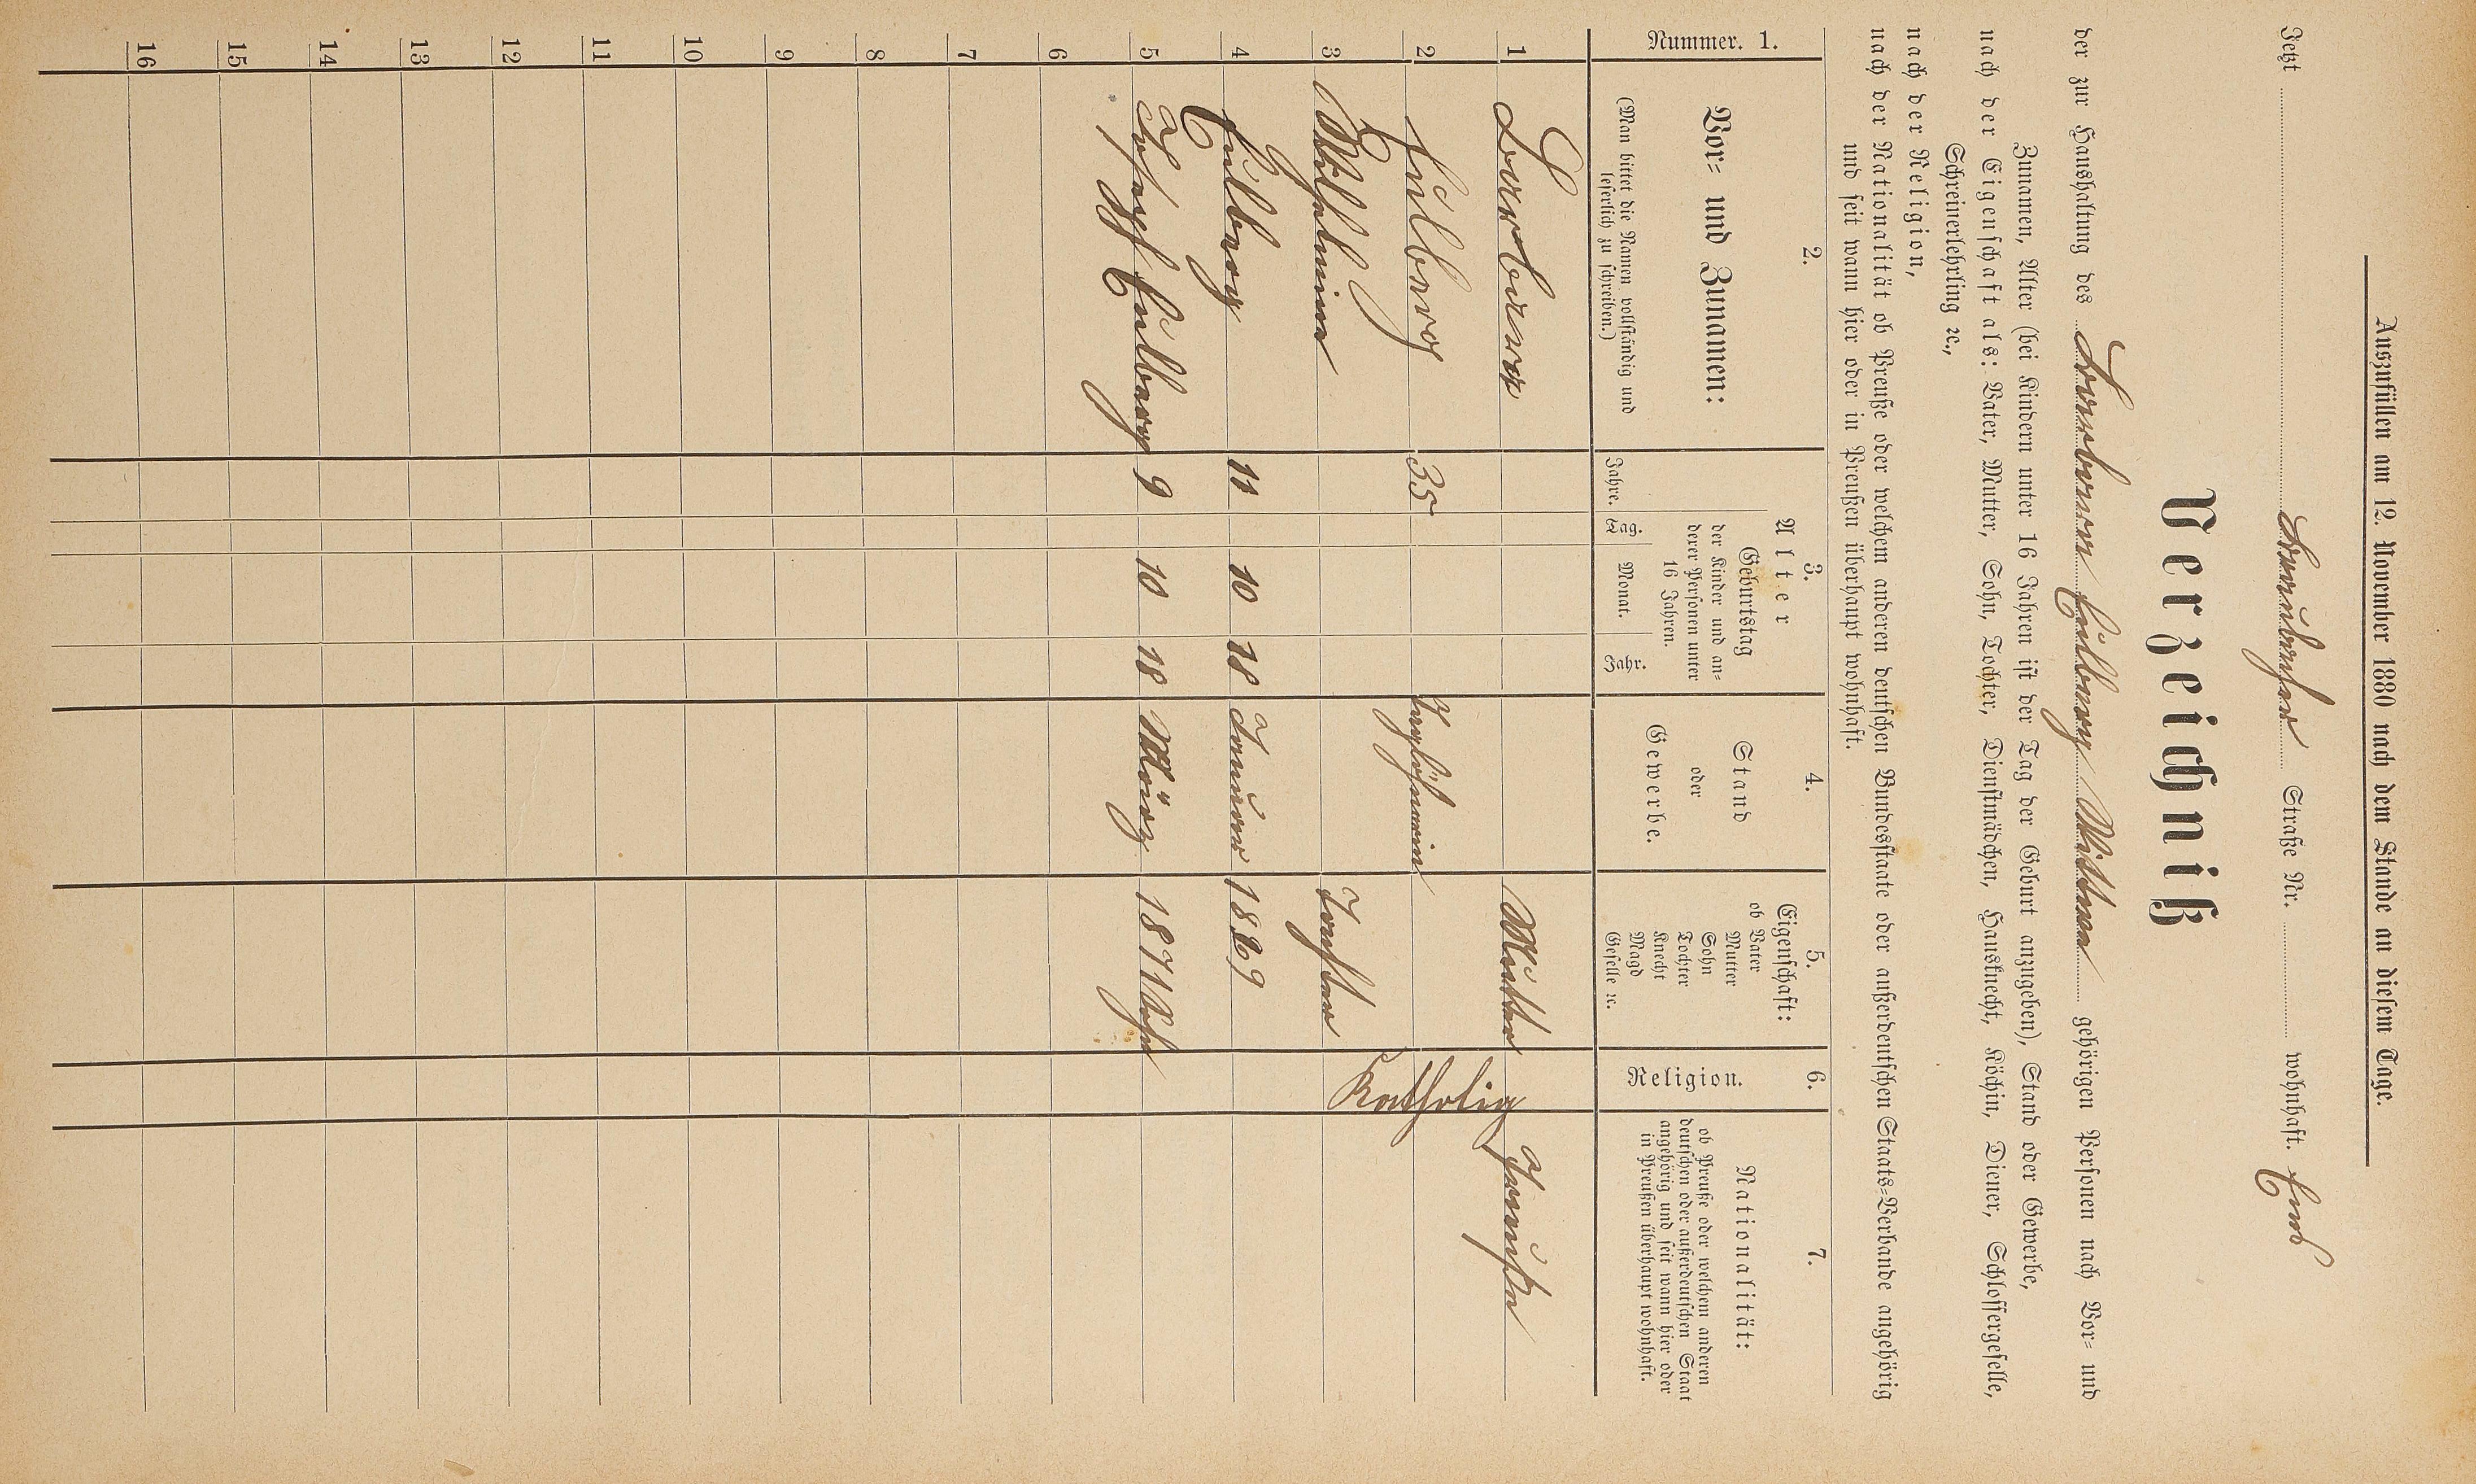 Auszufüllen am 12. November 1880 nach dem Stande an diesem Tage.
Jetzt Straße Nr. wohnhaft.
Verzeichniß
der zur Haushaltung des gehörigen Personen nach Vor- und
Zunamen, Alter (bei Kindern unter 16 Jahren ist der Tag der Geburt anzugeben), Stand oder Gewerbe,
nach der Eigenschaft als: Vater, Mutter, Sohn, Tochter, Dienstmädchen, Hausknecht, Köchin, Diener, Schlossergeselle,
Schreinerlehrling ꝛc.,
nach der Religion,
nach der Nationalität ob Preuße oder welchem anderen deutschen Bundesstaate oder außerdeutschen Staats-Verbande angehörig
und seit wann hier oder in Preußen überhaupt wohnhaft.
Nummer. 1.
2.
Vor- und Zunamen:
(Man bittet die Namen vollständig und
leserlich zu schreiben.)
3.
Alter
Jahre.
Geburtstag
der Kinder und an-
derer Personen unter
16 Jahren.
Tag. Monat. Jahr.
4.
Stand
oder
Gewerbe.
5.
Eigenschaft:
ob Vater
Mutter
Sohn
Tochter
Knecht
Magd
Geselle ꝛc.
6.
Religion.
7.
Nationalität:
ob Preuße oder welchem anderen
deutschen oder außerdeutschen Staat
angehörig und seit wann hier oder
in Preußen überhaupt wohnhaft.
1 Barbara Mutter Katholig
2 35 Taglöhnerin
3 Wilhelmine
4 11 10 18 Januar 1869
5 Joseph 9 10 18 März 1871 Sohn
6
7
8
9
10
11
12
13
14
15
16